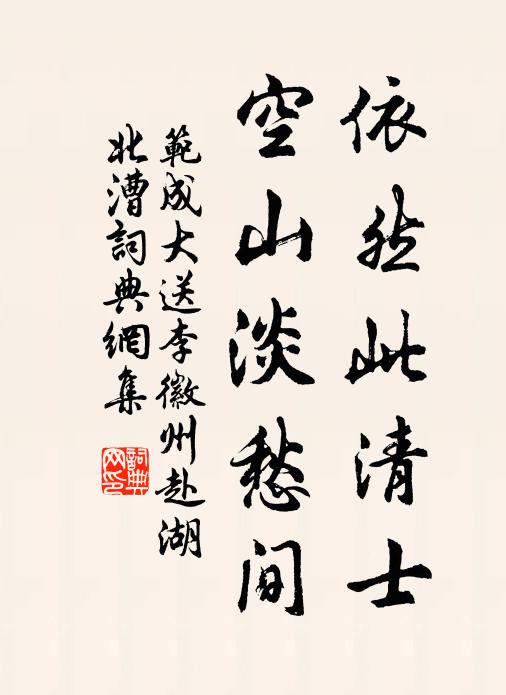 依然此清士
空山淡愁间
範成大送李徽州赴湖
北漕詞典網集
詞典网印